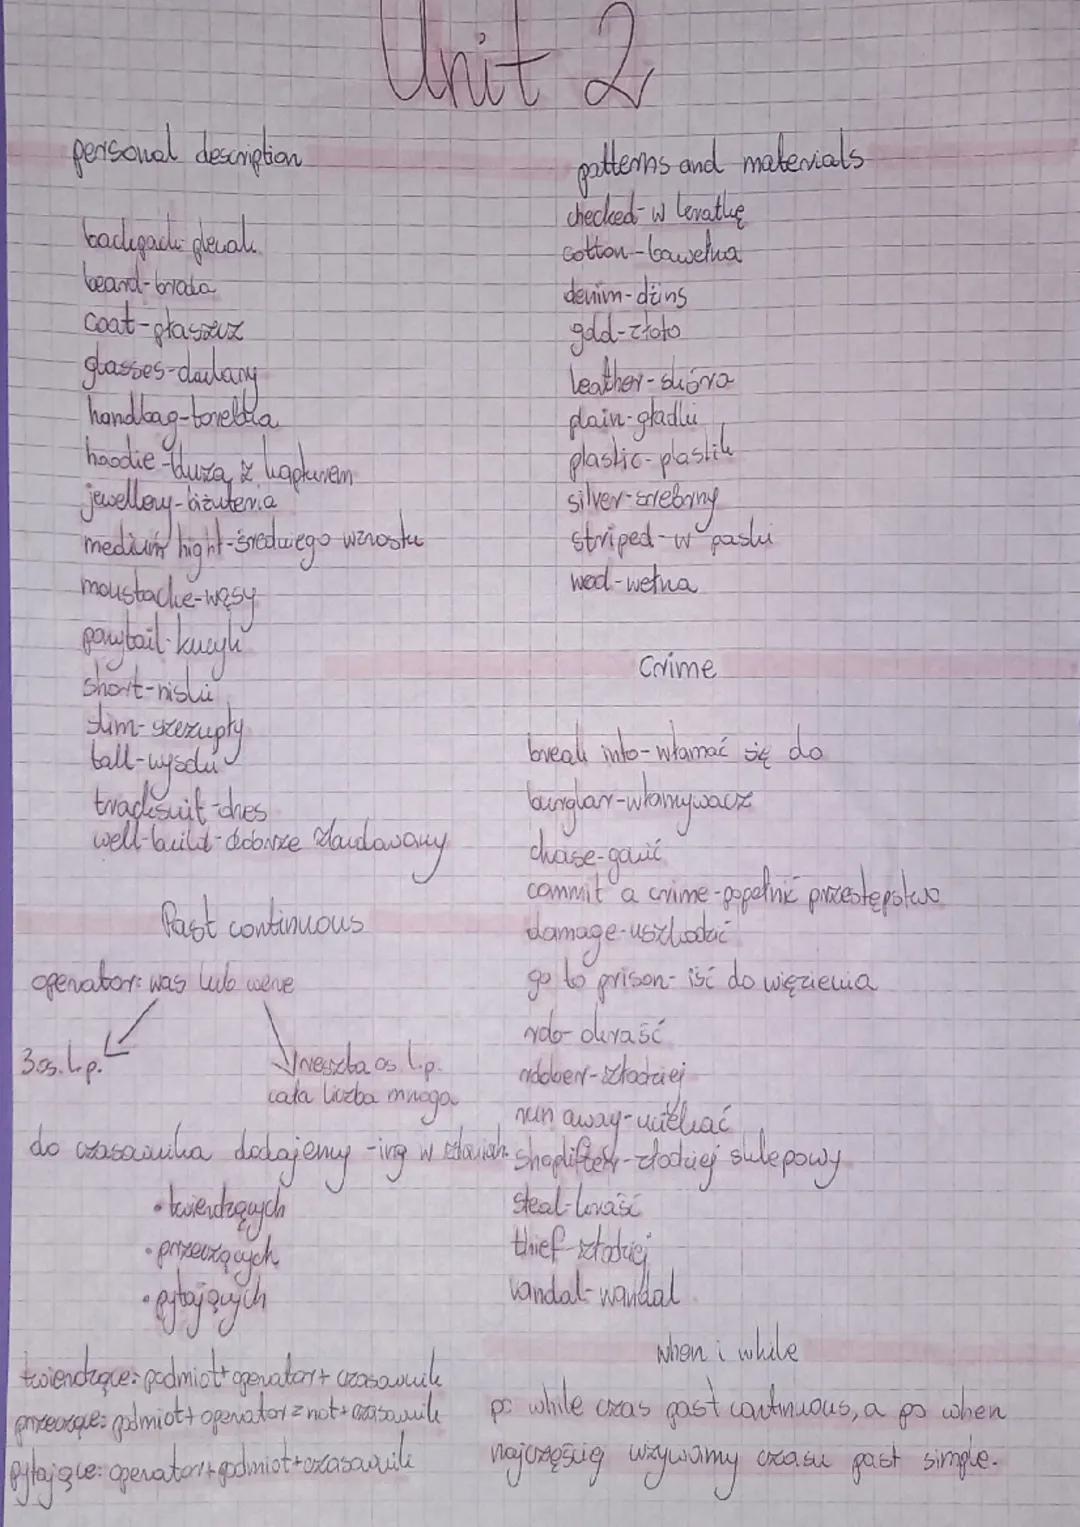 Unit 2
personal description
backpack-plecak
beard-broda
coat-płaszcz
glasses-okulary
handbag-torebka
hoodie-bluza z kapturem
jewellery-biżuteria
medium hight-średniego wzrostu
moustache-wąsy
ponytail-kucyk
short-niski
slim-szczupły
tall-wysoki
tracksuit-dres
well-build-dobrze zbudowany
Past continuous
operator: was lub were
3 os. l.p.
reszta os l.p.
cała liczba mnoga
do czasownika dodajemy -ing w zdaniach
• twierdzących
• przeczących
• pytających
twierdzące: podmiot+operator+czasownik
przeczące: podmiot+operator z not+czasownik
pytające: operator+podmiot+czasownik
patterns and materials
checked-w kratkę
cotton-bawełna
denim-dżins
gold-złoto
leather-skóra
plain-gładki
plastic-plastik
silver-srebrny
striped-w paski
wool-wełna
Crime
break into-włamać się do
burglar-włamywacz
chase-gonić
commit a crime-popełnić przestępstwo
damage-uszkodzić
go to prison-iść do więzienia
rob-okraść
robber-złodziej
run away-uciekać
shoplifter-złodziej sklepowy
steal-kraść
thief-złodziej
vandal-wandal
when i while
po while czas past continuous, a po when
najczęściej używamy czasu past simple.